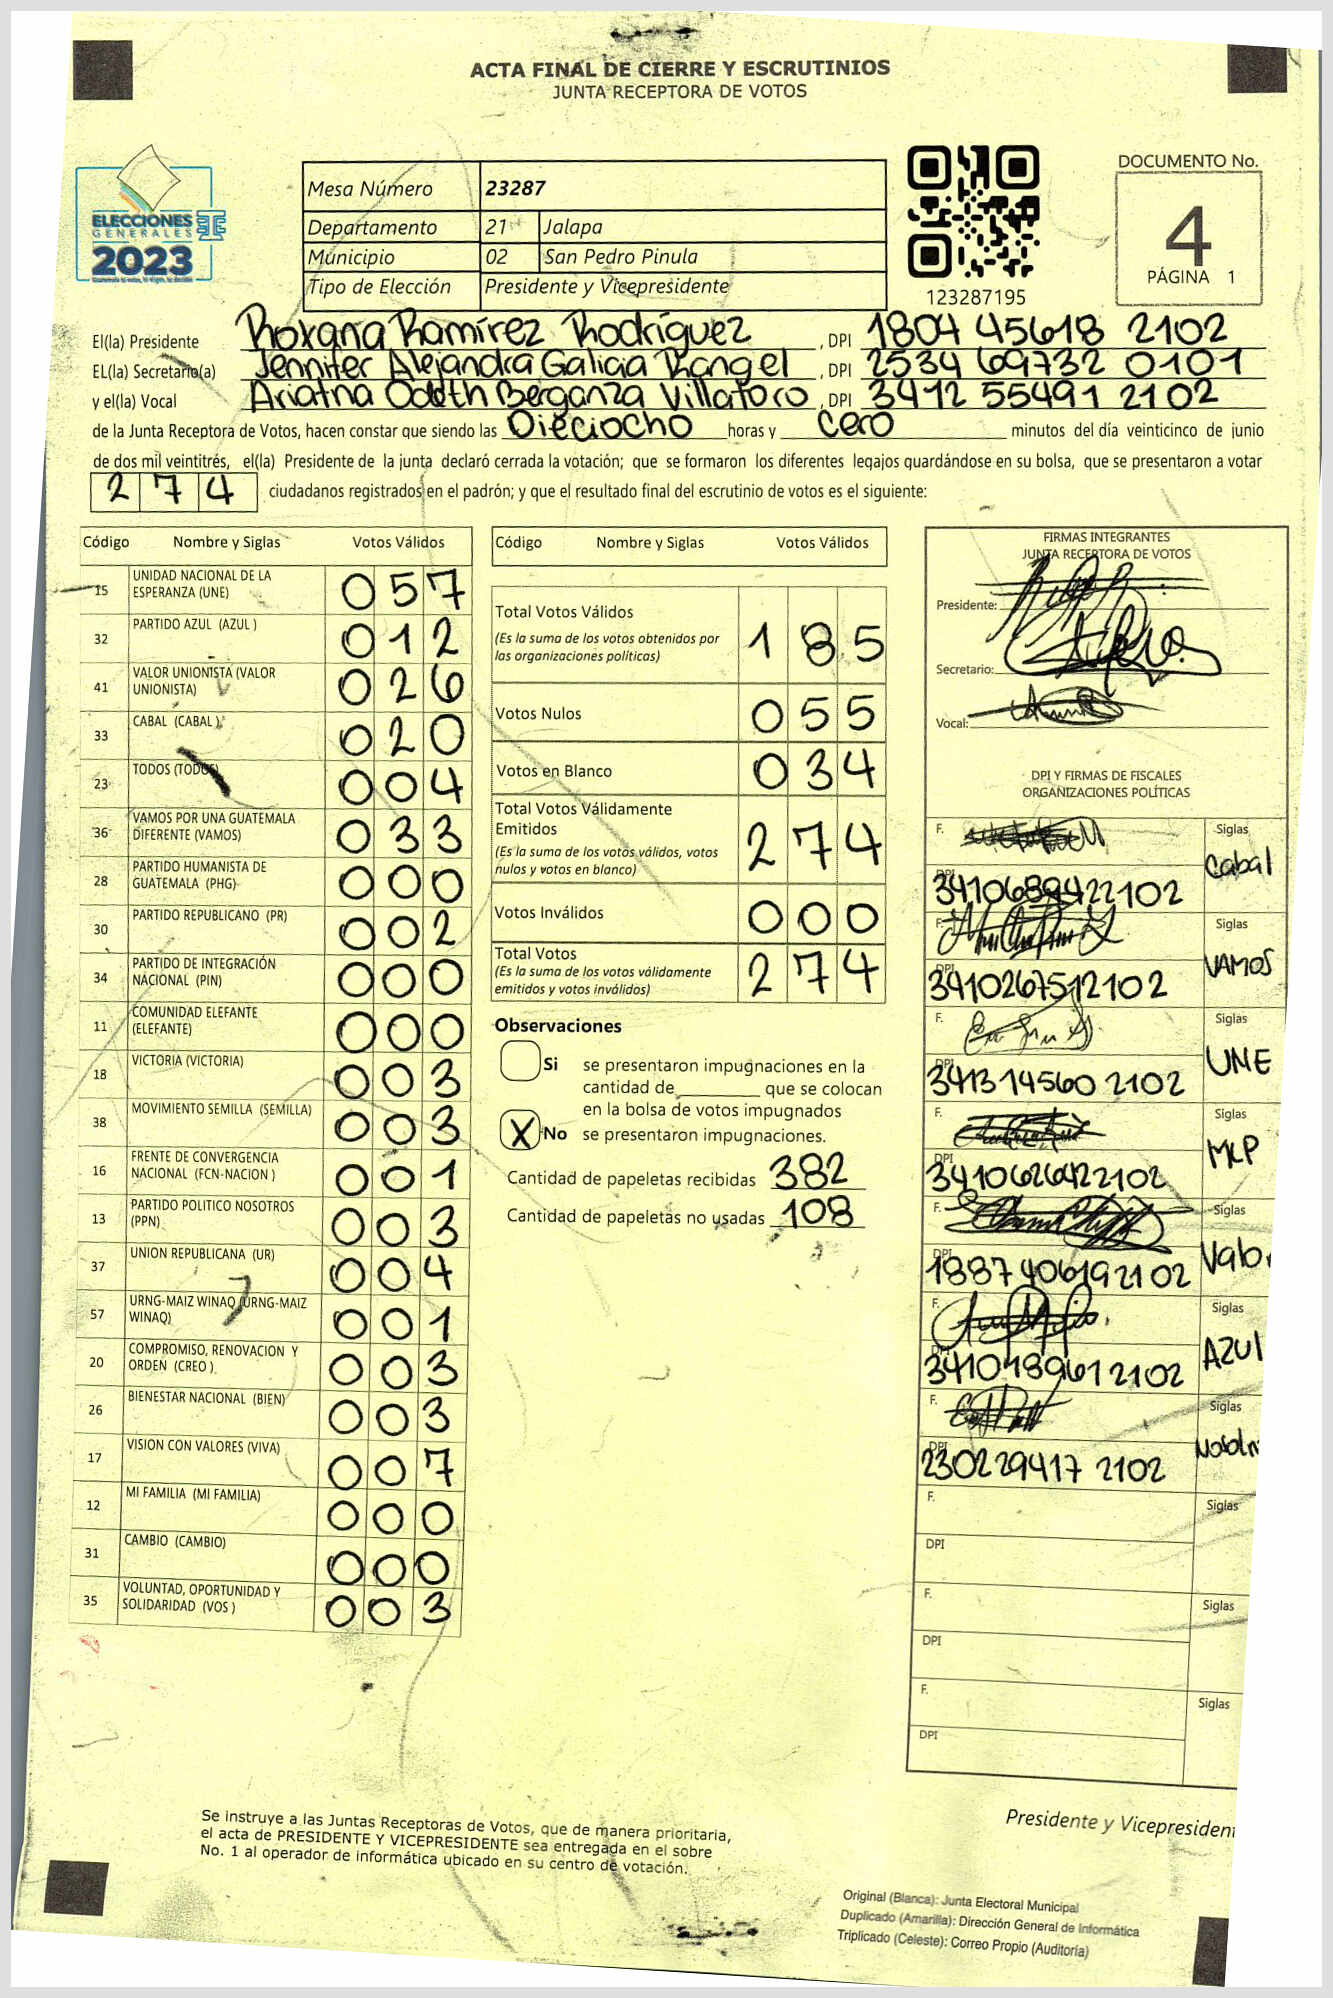 ACTA FINAL DE CIERRE Y ESCRUTINIOS
JUNTA RECEPTORA DE VOTOS
ELECCIONES
GENERALES
2023
Mesa Número 23287
Departamento 21 Jalapa
Municipio 02 San Pedro Pinula
Tipo de Elección Presidente y Vicepresidente
123287195
DOCUMENTO No.
4
PÁGINA 1
El(la) Presidente Roxana Ramírez Rodríguez, DPI 1804 45618 2102
EL(la) Secretario(a) Jennifer Alejandra Galicia Rangel, DPI 2534 69732 0101
y el(la) Vocal Odeth Berganza Villatoro, DPI 3412 55491 2102
de la Junta Receptora de Votos, hacen constar que siendo las Dieciocho horas y cero minutos del día veinticinco de junio
de dos mil veintitrés, el(la) Presidente de la junta declaró cerrada la votación; que se formaron los diferentes legajos guardándose en su bolsa, que se presentaron a votar
274 ciudadanos registrados en el padrón; y que el resultado final del escrutinio de votos es el siguiente:
Código Nombre y Siglas Votos Válidos
15 UNIDAD NACIONAL DE LA ESPERANZA (UNE) 057
32 PARTIDO AZUL (AZUL ) 012
41 VALOR UNIONISTA (VALOR UNIONISTA) 026
33 CABAL (CABAL ) 020
23 TODOS (TODOS) 004
36 VAMOS POR UNA GUATEMALA DIFERENTE (VAMOS) 033
28 PARTIDO HUMANISTA DE GUATEMALA (PHG) 000
30 PARTIDO REPUBLICANO (PR) 002
34 PARTIDO DE INTEGRACIÓN NACIONAL (PIN) 000
11 COMUNIDAD ELEFANTE (ELEFANTE) 000
18 VICTORIA (VICTORIA) 003
38 MOVIMIENTO SEMILLA (SEMILLA) 003
16 FRENTE DE CONVERGENCIA NACIONAL (FCN-NACION ) 001
13 PARTIDO POLITICO NOSOTROS (PPN) 003
37 UNION REPUBLICANA (UR) 004
57 URNG-MAIZ WINAQ (URNG-MAIZ WINAQ) 001
20 COMPROMISO, RENOVACION Y ORDEN (CREO ) 003
26 BIENESTAR NACIONAL (BIEN) 003
17 VISION CON VALORES (VIVA) 007
12 MI FAMILIA (MI FAMILIA) 000
31 CAMBIO (CAMBIO) 000
35 VOLUNTAD, OPORTUNIDAD Y SOLIDARIDAD (VOS ) 003
Código Nombre y Siglas Votos Válidos
Total Votos Válidos 185
(Es la suma de los votos obtenidos por
las organizaciones políticas)
Votos Nulos 055
Votos en Blanco 034
Total Votos Válidamente
Emitidos 274
(Es la suma de los votos válidos, votos
nulos y votos en blanco)
Votos Inválidos 000
Total Votos 274
(Es la suma de los votos válidamente
emitidos y votos inválidos)
Observaciones
Si se presentaron impugnaciones en la
cantidad de________ que se colocan
en la bolsa de votos impugnados
X No se presentaron impugnaciones.
Cantidad de papeletas recibidas 382
Cantidad de papeletas no usadas 108
FIRMAS INTEGRANTES
JUNTA RECEPTORA DE VOTOS
Presidente:
Secretario:
Vocal:
DPI Y FIRMAS DE FISCALES
ORGANIZACIONES POLÍTICAS
F. Siglas Cabal
DPI
F. Siglas VAMOS
DPI 3410267512102
F. Siglas UNE
DPI 3413 14560 2102
F. Siglas MLP
DPI 3410626422102
F. Siglas Valor
DPI 1887 406192102
F. Siglas AZUL
DPI 3410189612102
F. Siglas
DPI 230229417 2102
F. Siglas
DPI
F. Siglas
DPI
F. Siglas
DPI
Se instruye a las Juntas Receptoras de Votos, que de manera prioritaria,
el acta de PRESIDENTE Y VICEPRESIDENTE sea entregada en el sobre
No. 1 al operador de informática ubicado en su centro de votación.
Presidente y Vicepresiden
Original (Blanca): Junta Electoral Municipal
Duplicado (Amarilla): Dirección General de Informática
Triplicado (Celeste): Correo Propio (Auditoría)